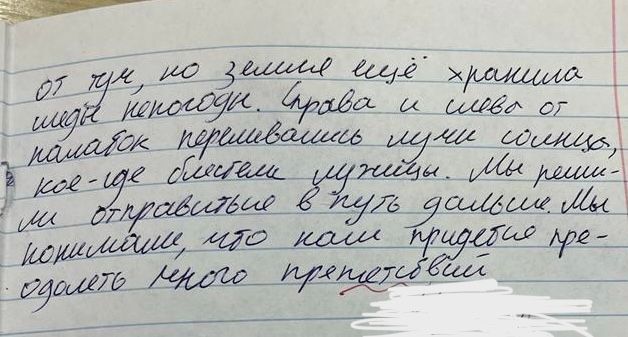 от туч, но земля ещё хранила
следы непогоды. Справа и слева от
палаток переливались лучи солнца,
кое-где блестели лужицы. Мы реши-
ли отправиться в путь дальше. Мы
понимали, что нам придется пре-
одолеть много препятствий